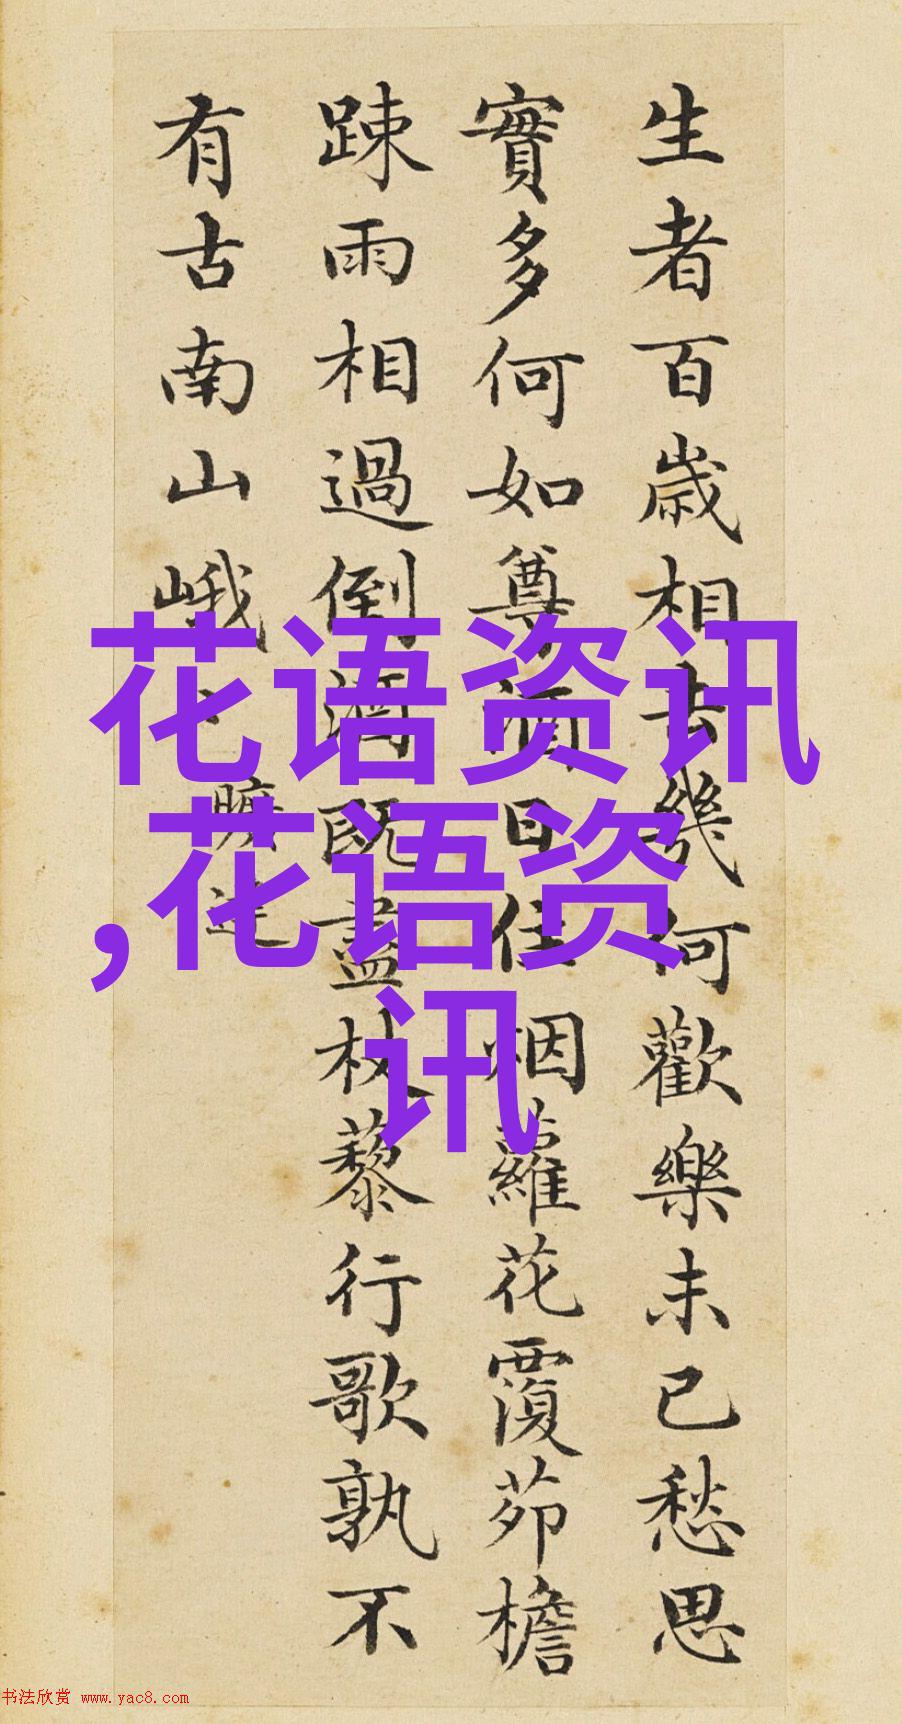 生者百歲相去幾何歡樂未已愁思
實多何如尊酒日往烟蘿花覆茆檐
踈雨相過倒酒既盡杖藜行歌孰不
有古南山峨〻曠達
花语资讯
,花语资
讯
书法欣赏 www.yac8.com